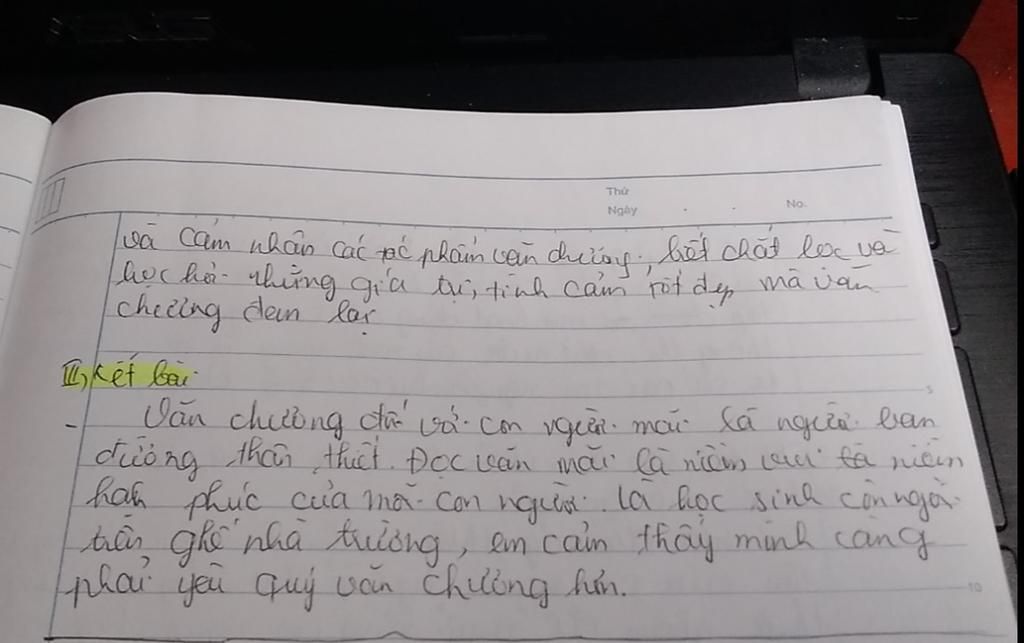 ASUS
Thứ
Ngày . . No.
và cảm nhận các tác phẩm văn chương, biết chắt lọc và
học hỏi những giá trị, tình cảm tốt đẹp mà văn
chương đem lại
III, Kết bài
- Văn chương đối với con người mãi là người bạn
đường thân thiết. Đọc văn mãi là niềm vui là niềm
hạnh phúc của mỗi con người. Là học sinh còn ngồi
trên ghế nhà trường, em cảm thấy mình càng
phải yêu quý văn chương hơn.
5
10